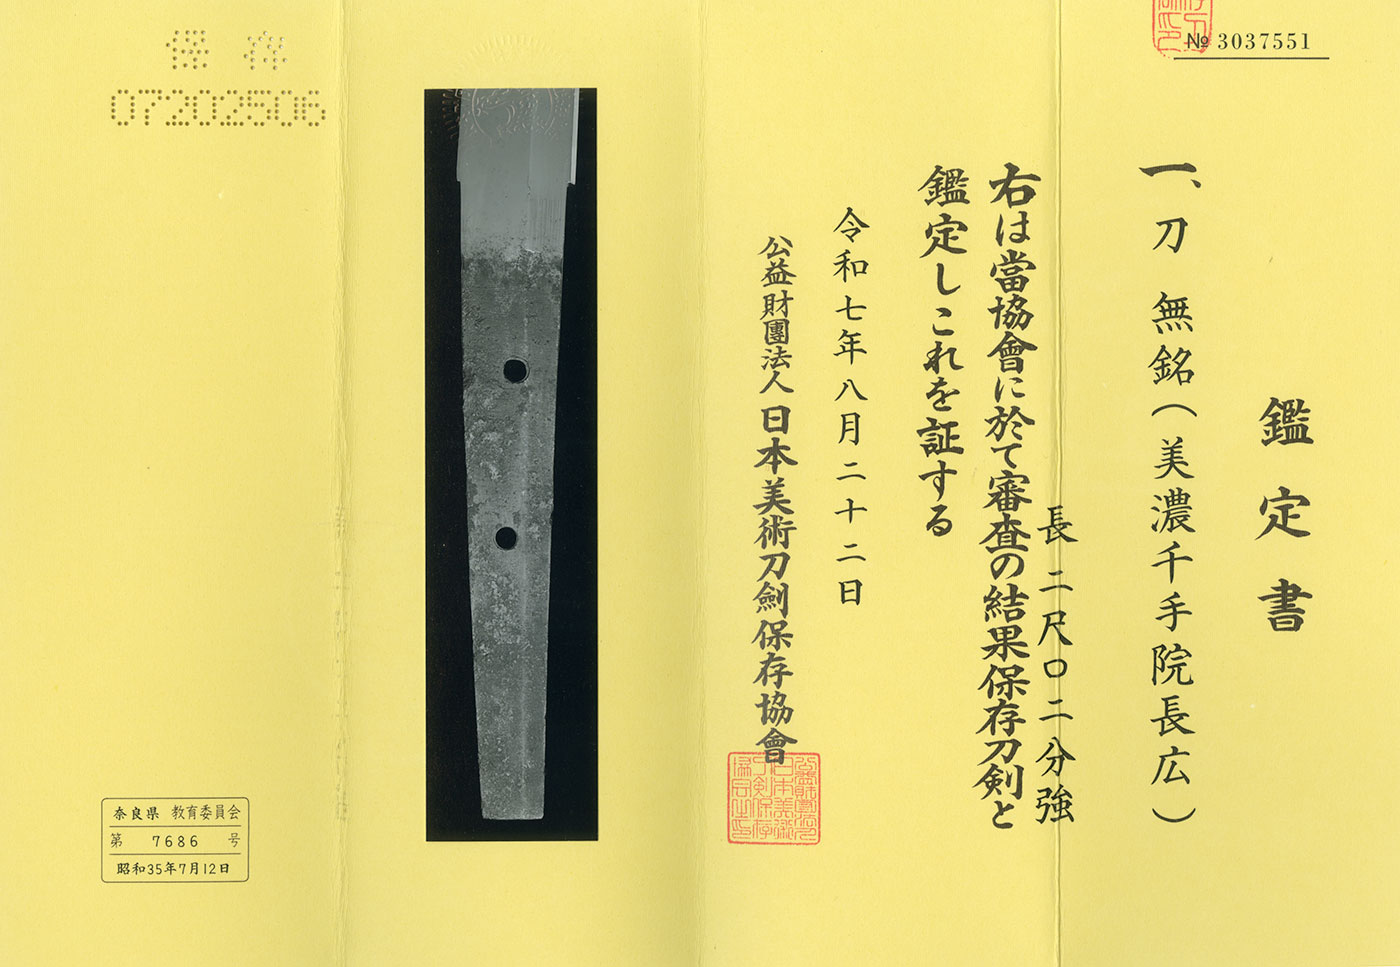 № 3037551
鑑定書
一、刀 無銘(美濃千手院長広)
長 二尺〇二分強
右は當協會に於て審査の結果保存刀剣と
鑑定しこれを証する
令和七年八月二十二日
公益財團法人 日本美術刀劍保存協會
保存
07202506
奈良県 教育委員会
第 7686 号
昭和35年7月12日